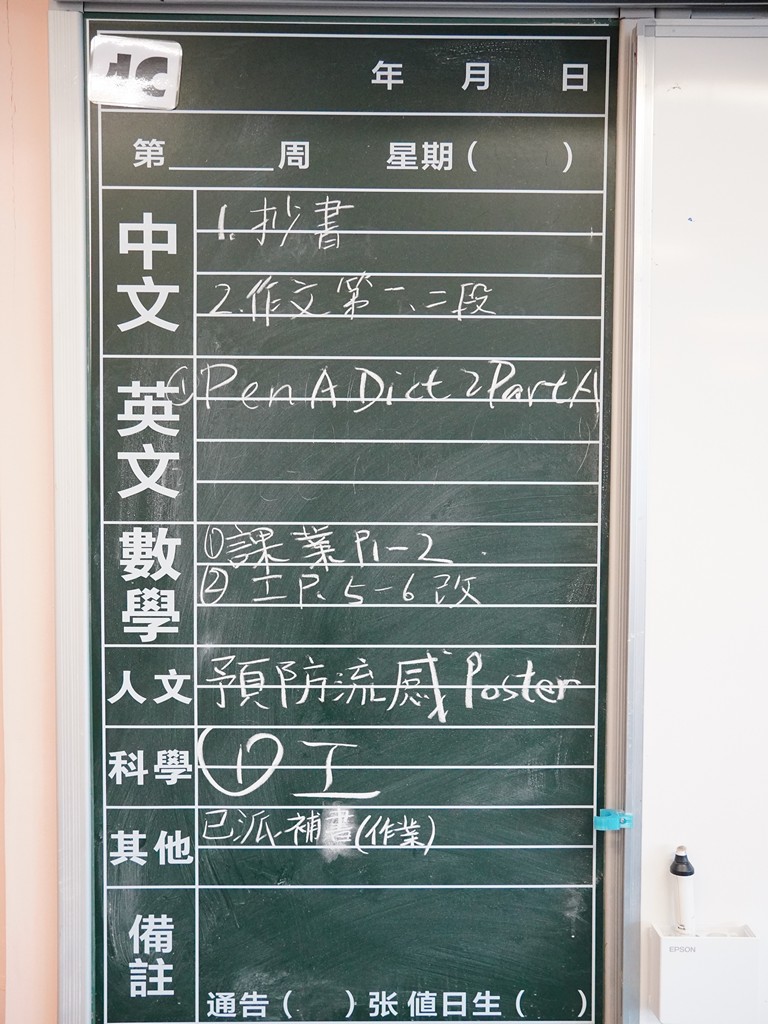 1C
年 月 日
第____周 星期( )
中文
1.抄書
2.作文第一、二段
英文
① Pen A Dict 2 Part A
數學
①課業P1-2
② 工P.5-6改
人文
預防流感Poster
科學
① 工
其他
已派補書(作業)
備註
通告( )张 值日生( )
EPSON